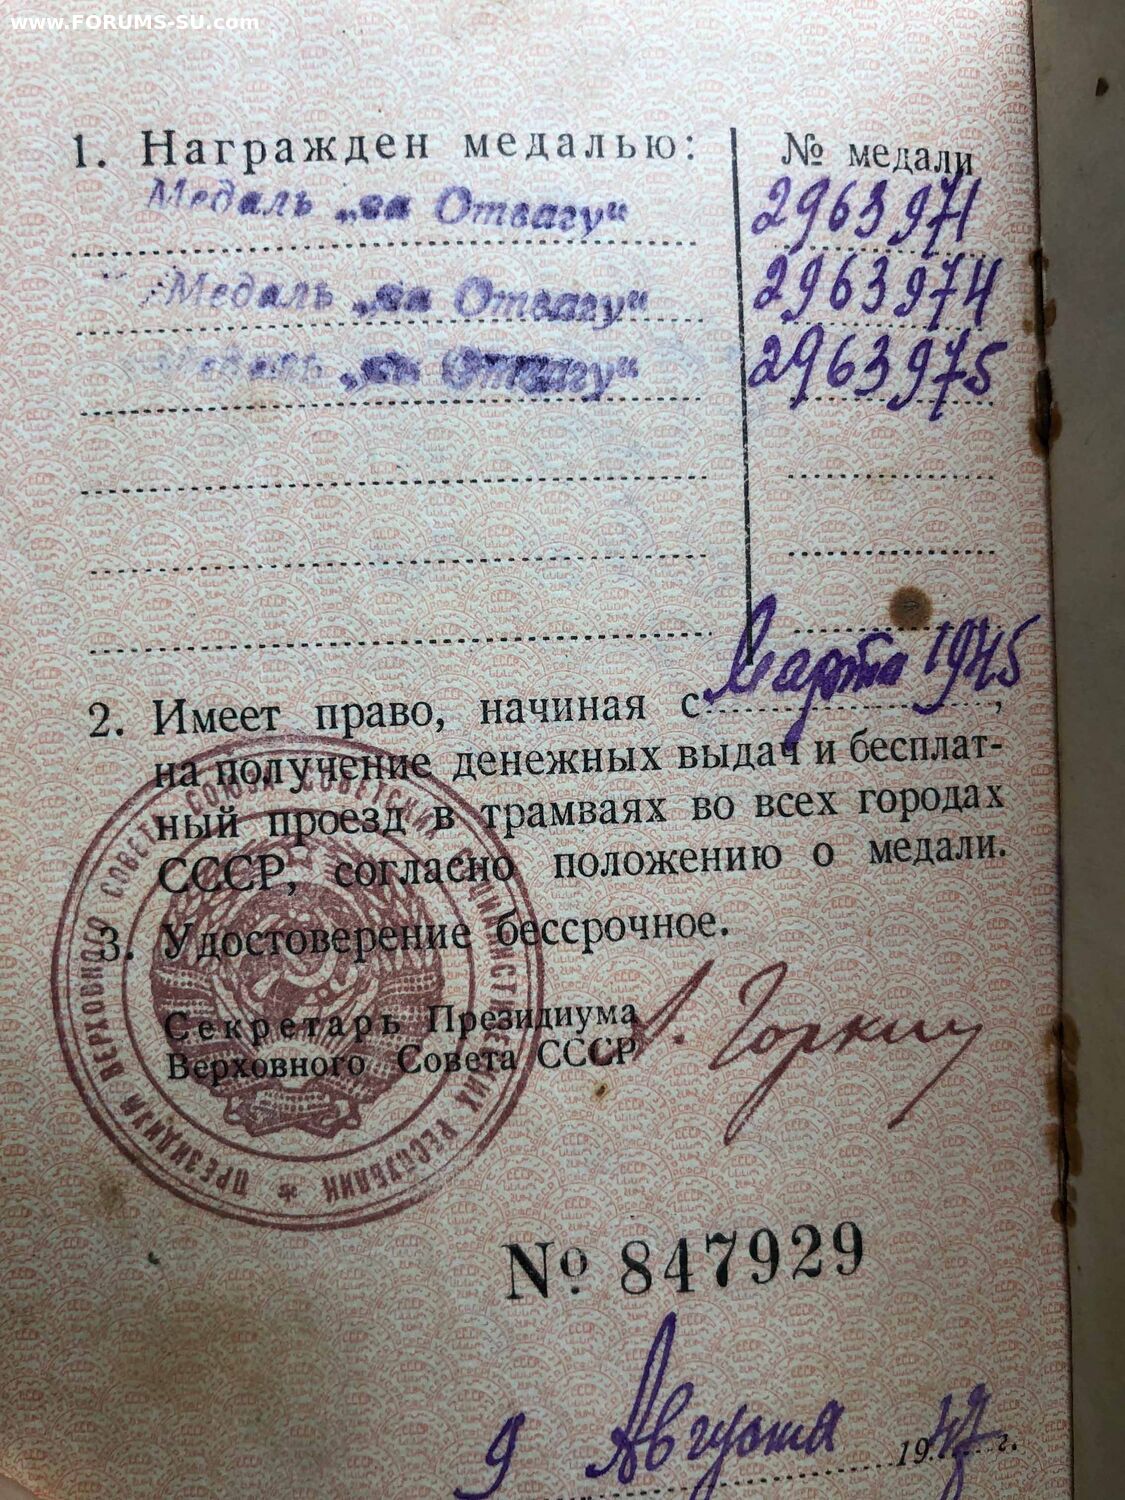 www.FORUMS-SU.com
1. Награжден медалью: № медали
Медаль „за Отвагу“ 2963971
Медаль „за Отвагу“ 2963974
Медаль „за Отвагу“ 2963975
2. Имеет право, начиная с марта 1945,
на получение денежных выдач и бесплат-
ный проезд в трамваях во всех городах
СССР, согласно положению о медали.
3. Удостоверение бессрочное.
Секретарь Президиума
Верховного Совета СССР
А. Горкин
ПРЕЗИДИУМ ВЕРХОВНОГО СОВЕТА СОЮЗА СОВЕТСКИХ СОЦИАЛИСТИЧЕСКИХ РЕСПУБЛИК
№ 847929
9 Августа 1947 г.